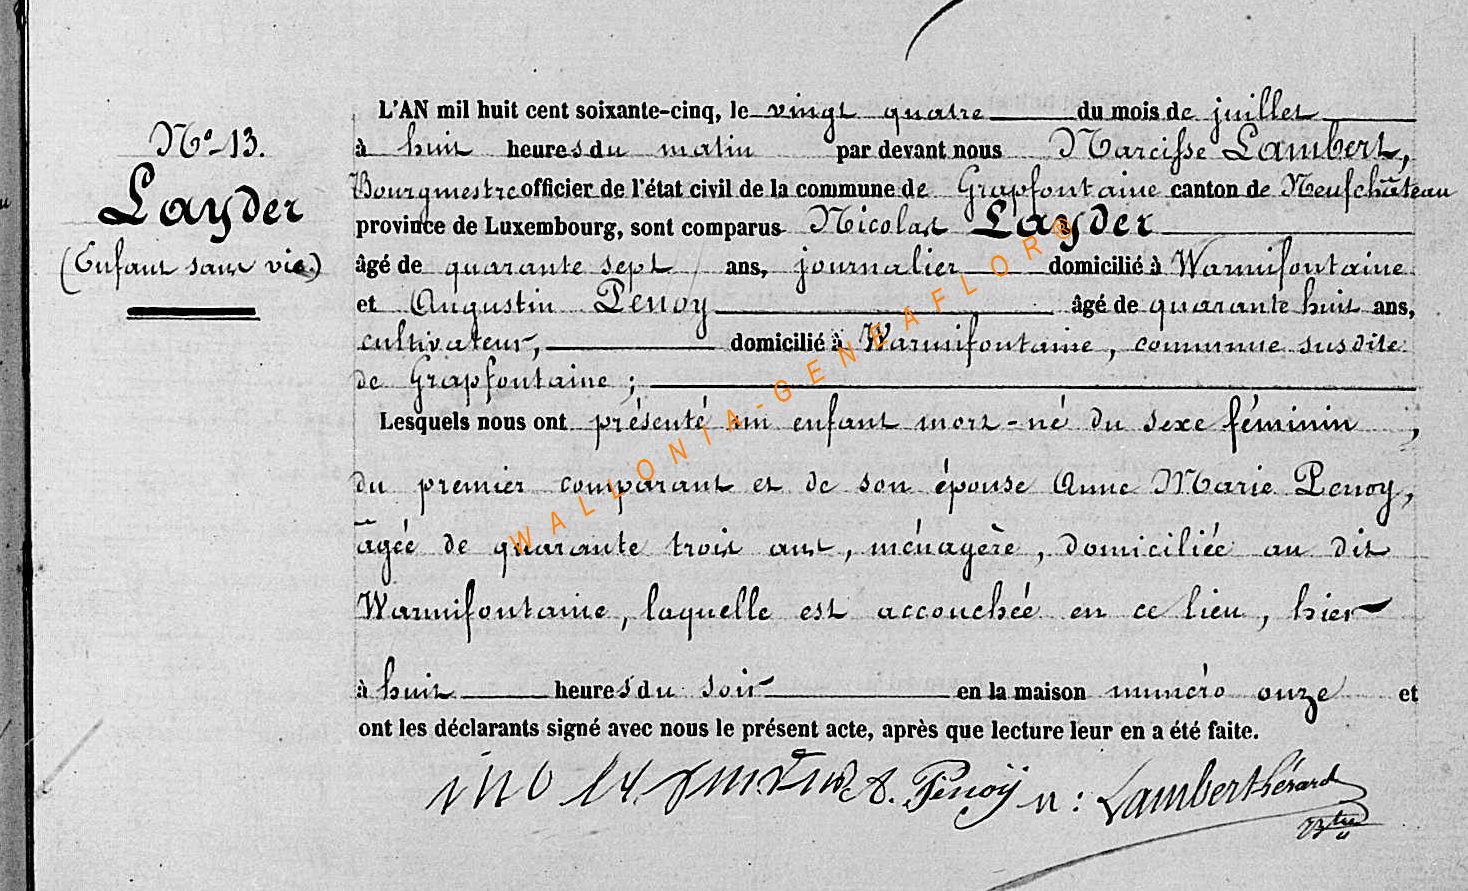 N° 13.
Layder
(Enfant sans vie)
L'AN mil huit cent soixante-cinq, le vingt quatre du mois de juillet
à huit heures du matin par devant nous Narcisse Lambert,
Bourgmestre officier de l'état civil de la commune de Grapfontaine canton de Neufchâteau
province de Luxembourg, sont comparus Nicolas Layder
âgé de quarante sept ans, journalier domicilié à Warmifontaine
et Augustin Penoy âgé de quarante huit ans,
cultivateur, domicilié à Warmifontaine, commune susdite
de Grapfontaine ;
Lesquels nous ont présenté un enfant mort-né du sexe féminin ;
du premier comparant et de son épouse Anne Marie Penoy,
âgée de quarante trois ans, ménagère, domiciliée au dit
Warmifontaine, laquelle est accouchée en ce lieu, hier
à huit heures du soir en la maison numéro onze et
ont les déclarants signé avec nous le présent acte, après que lecture leur en a été faite.
A. Penoÿ n : Lambert hérard
WALLONIA-GENEAFLOR®